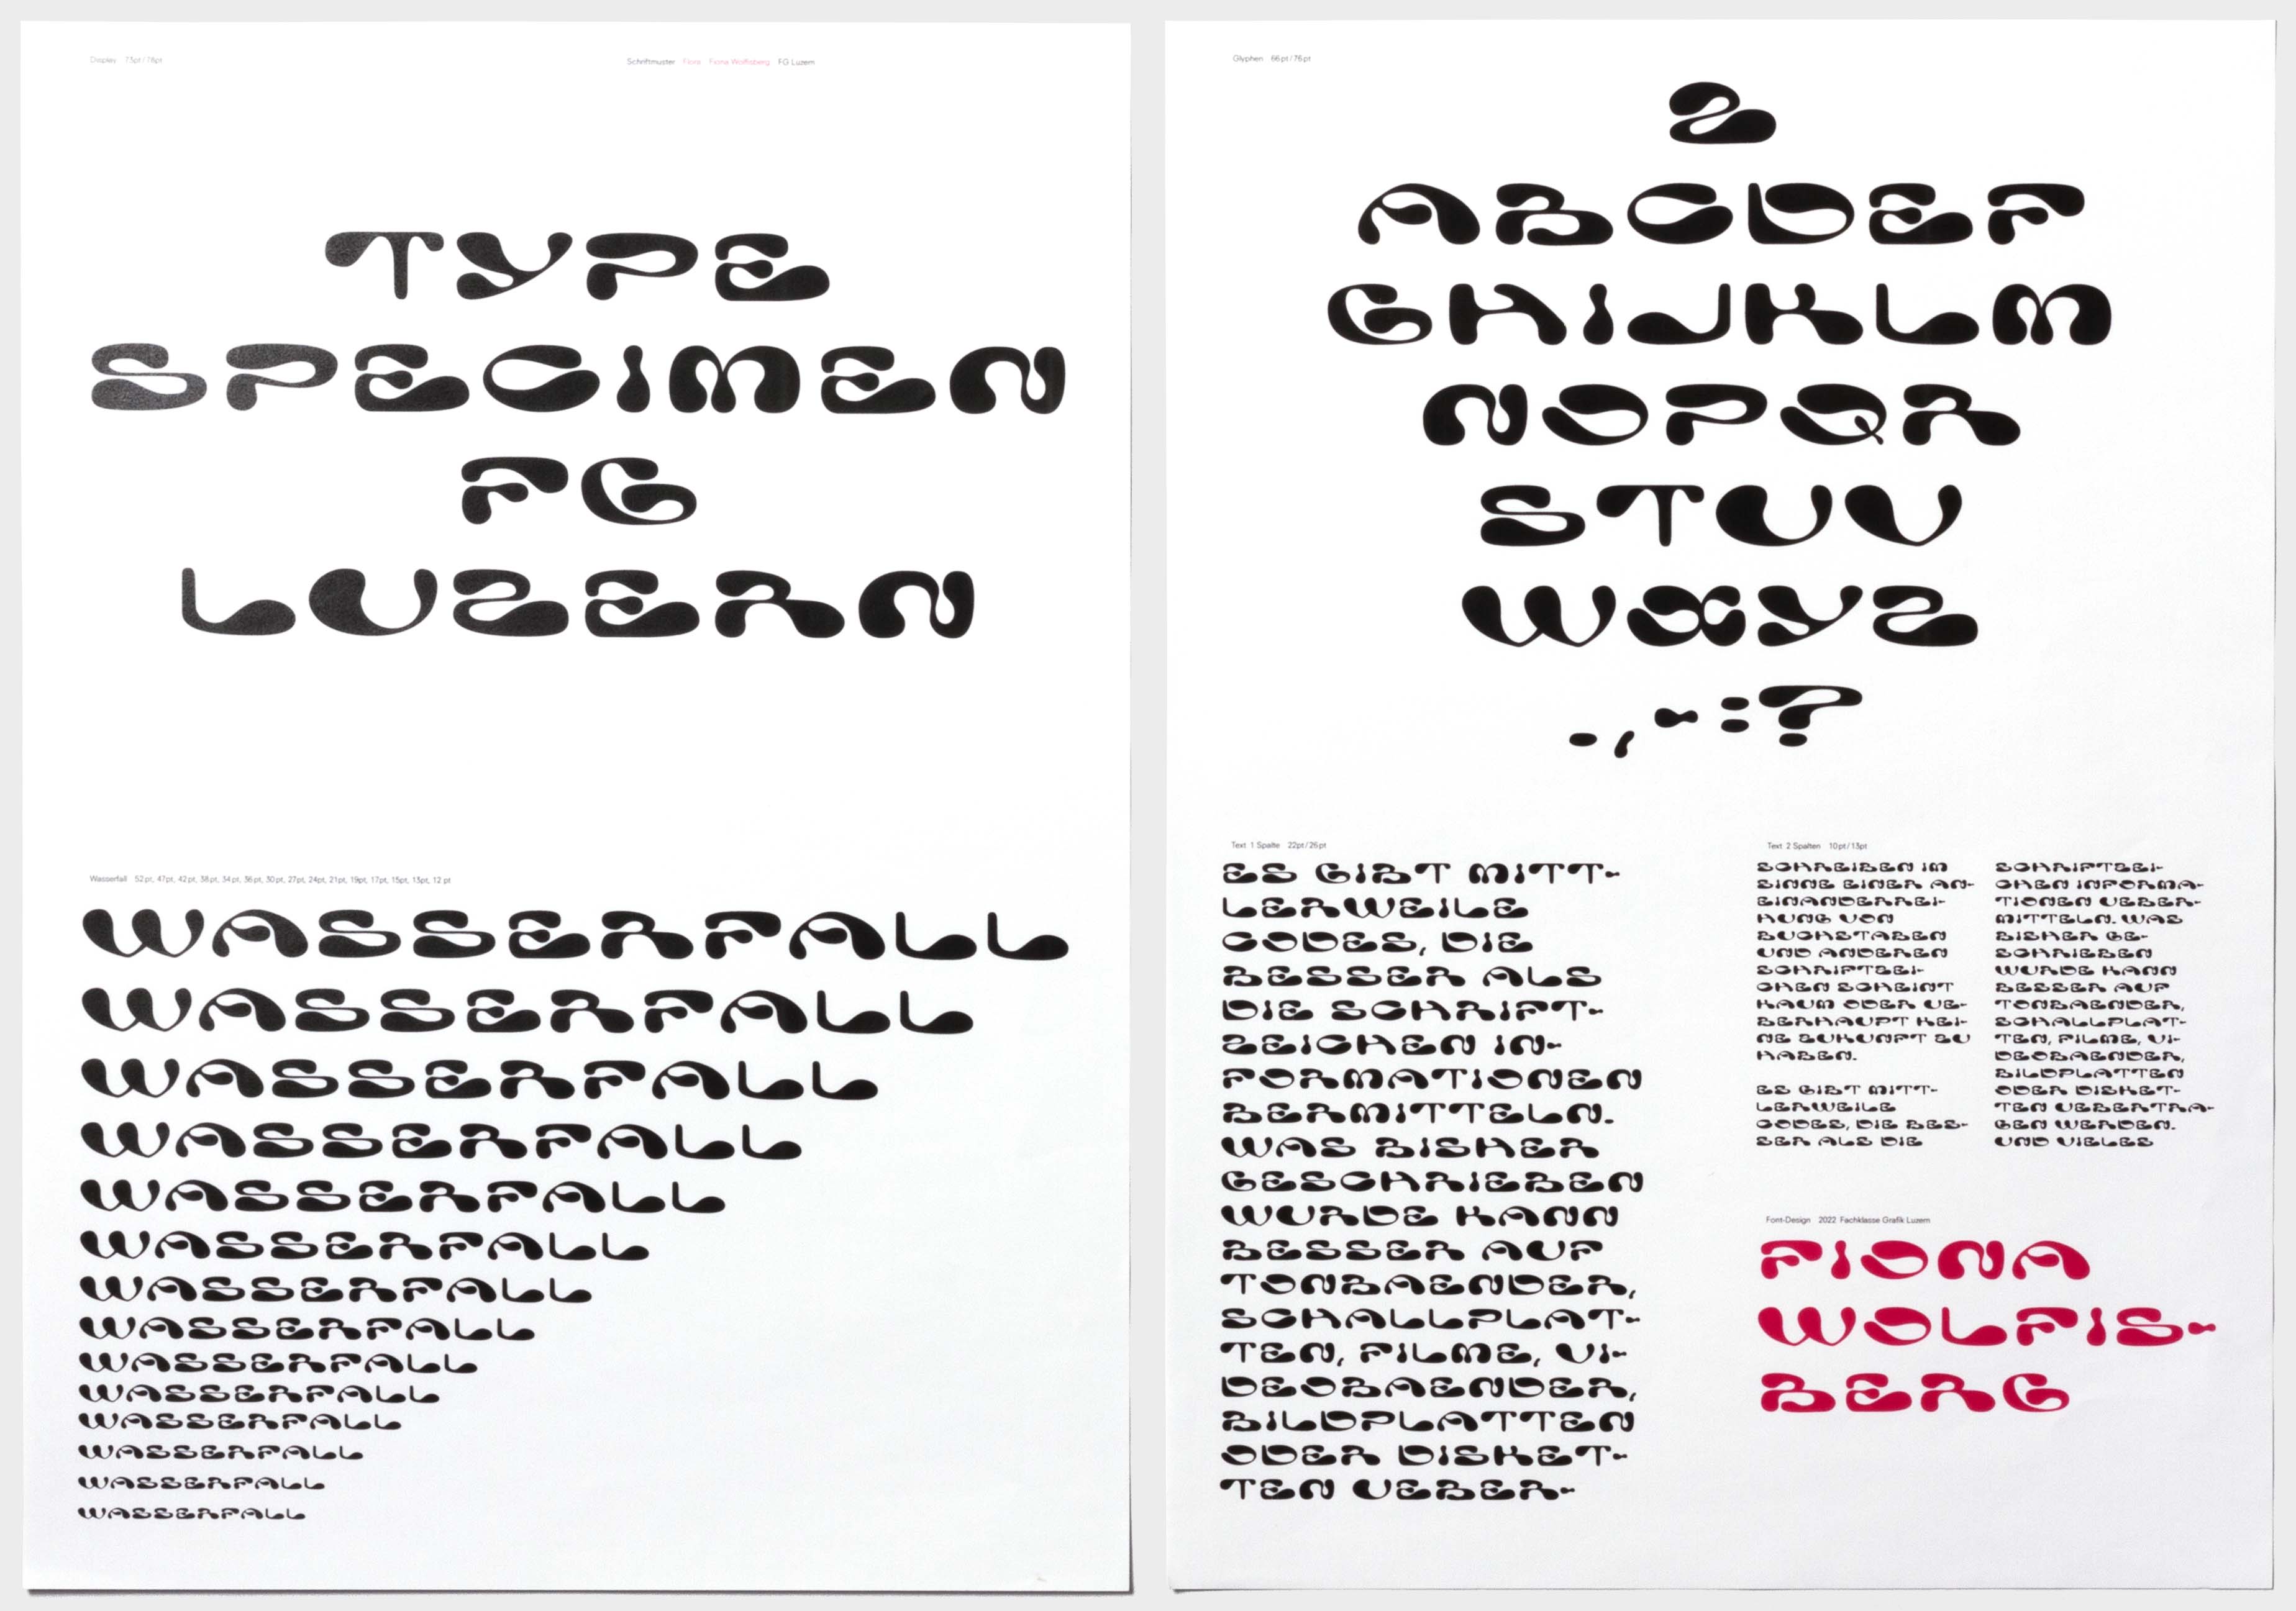 Display 73pt / 76pt
Schriftmuster Flora Fiona Wolfisberg FG Luzern
TYPE
SPECIMEN
FG
LUZERN
Wasserfall 52 pt, 47 pt, 42 pt, 38 pt, 34 pt, 36 pt, 30 pt, 27pt, 24pt, 21pt, 19pt, 17pt, 15pt, 13pt, 12 pt
WASSERFALL
WASSERFALL
WASSERFALL
WASSERFALL
WASSERFALL
WASSERFALL
WASSERFALL
WASSERFALL
WASSERFALL
WASSERFALL
WASSERFALL
WASSERFALL
WASSERFALL
WASSERFALL
Glyphen 66 pt / 76 pt
2
ABCDEF
GHIJKLM
NOPQR
STUV
WXYZ
.,-:?
Text 1 Spalte 22pt / 26 pt
ES GIBT MITT-
LERWEILE
CODES, DIE
BESSER ALS
DIE SCHRIFT-
ZEICHEN IN-
FORMATIONEN
BERMITTELN.
WAS BISHER
GESCHRIEBEN
WURDE KANN
BESSER AUF
TONBAENDER,
SCHALLPLAT-
TEN, FILME, VI-
DEOBAENDER,
BILDPLATTEN
ODER DISKET-
TEN UEBER-
Text 2 Spalten 10 pt / 13pt
SCHREIBEN IM
SINNE EINER AN-
EINANDERREI-
HUNG VON
BUCHSTABEN
UND ANDEREN
SCHRIFTZEI-
CHEN SCHEINT
KAUM ODER UE-
BERHAUPT KEI-
NE ZUKUNFT ZU
HABEN.
ES GIBT MITT-
LERWEILE
CODES, DIE BES-
SER ALS DIE
SCHRIFTZEI-
CHEN INFORMA-
TIONEN UEBER-
MITTELN. WAS
BISHER GE-
SCHRIEBEN
WURDE KANN
BESSER AUF
TONBAENDER,
SCHALLPLAT-
TEN, FILME, VI-
DEOBAENDER,
BILDPLATTEN
ODER DISKET-
TEN UEBERTRA-
GEN WERDEN.
UND VIELES
Font-Design 2022 Fachklasse Grafik Luzern
FIONA
WOLFIS-
BERG